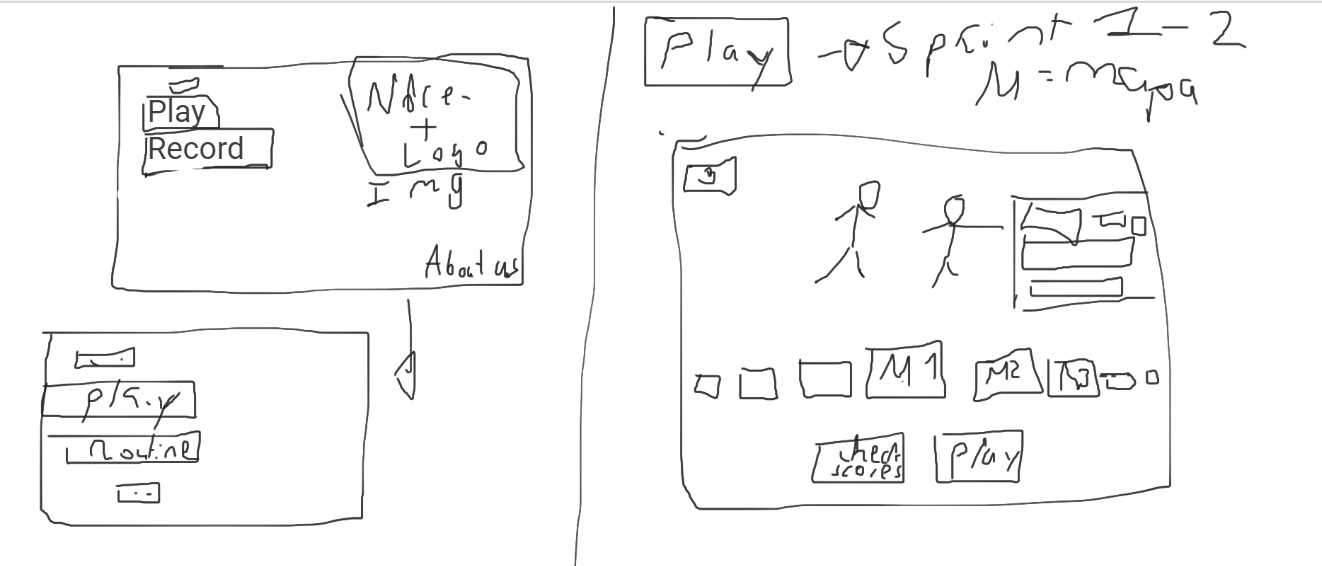 Play
Record
+
Logo
Img
About us
Play
Routine
Play → Sprint 1-2
M = mapa
M1
M2
check
scores
Play